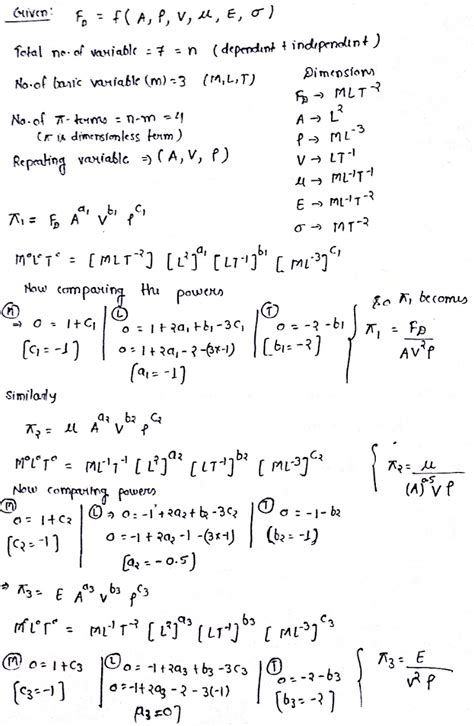 Given: F_D = f(A, ρ, V, μ, E, σ)
Total no. of variable = 7 = n (dependent + independent)
No. of basic variable (m) = 3 (M, L, T)
No. of π-terms = n-m = 4
(π is dimensionless term)
Repeating variable ⇒ (A, V, ρ)
Dimensions
F_D → MLT^-2
A → L^2
ρ → ML^-3
V → LT^-1
μ → ML^-1T^-1
E → ML^-1T^-2
σ → MT^-2
π1 = F_D A^a1 V^b1 ρ^c1
M^0L^0T^0 = [MLT^-2] [L^2]^a1 [LT^-1]^b1 [ML^-3]^c1
Now comparing the powers
(M) ⇒ 0 = 1+c1
[c1 = -1]
(L) 0 = 1+2a1+b1-3c1
0 = 1+2a1-2-(3x-1)
[a1 = -1]
(T) 0 = -2-b1
[b1 = -2]
So π1 becomes
π1 = F_D / AV^2ρ
Similarly
π2 = μ A^a2 V^b2 ρ^c2
M^0L^0T^0 = ML^-1T^-1 [L^2]^a2 [LT^-1]^b2 [ML^-3]^c2
Now comparing powers
(M) 0 = 1+c2
[c2 = -1]
(L) ⇒ 0 = -1+2a2+b2-3c2
0 = -1+2a2-1-(3x-1)
[a2 = -0.5]
(T) 0 = -1-b2
(b2 = -1)
π2 = μ / (A)^0.5 Vρ
⇒ π3 = E A^a3 V^b3 ρ^c3
M^0L^0T^0 = ML^-1T^-2 [L^2]^a3 [LT^-1]^b3 [ML^-3]^c3
(M) 0 = 1+c3
[c3 = -1]
(L) 0 = -1+2a3+b3-3c3
0 = -1+2a3-2-3(-1)
[a3 = 0]
(T) 0 = -2-b3
[b3 = -2]
π3 = E / V^2ρ